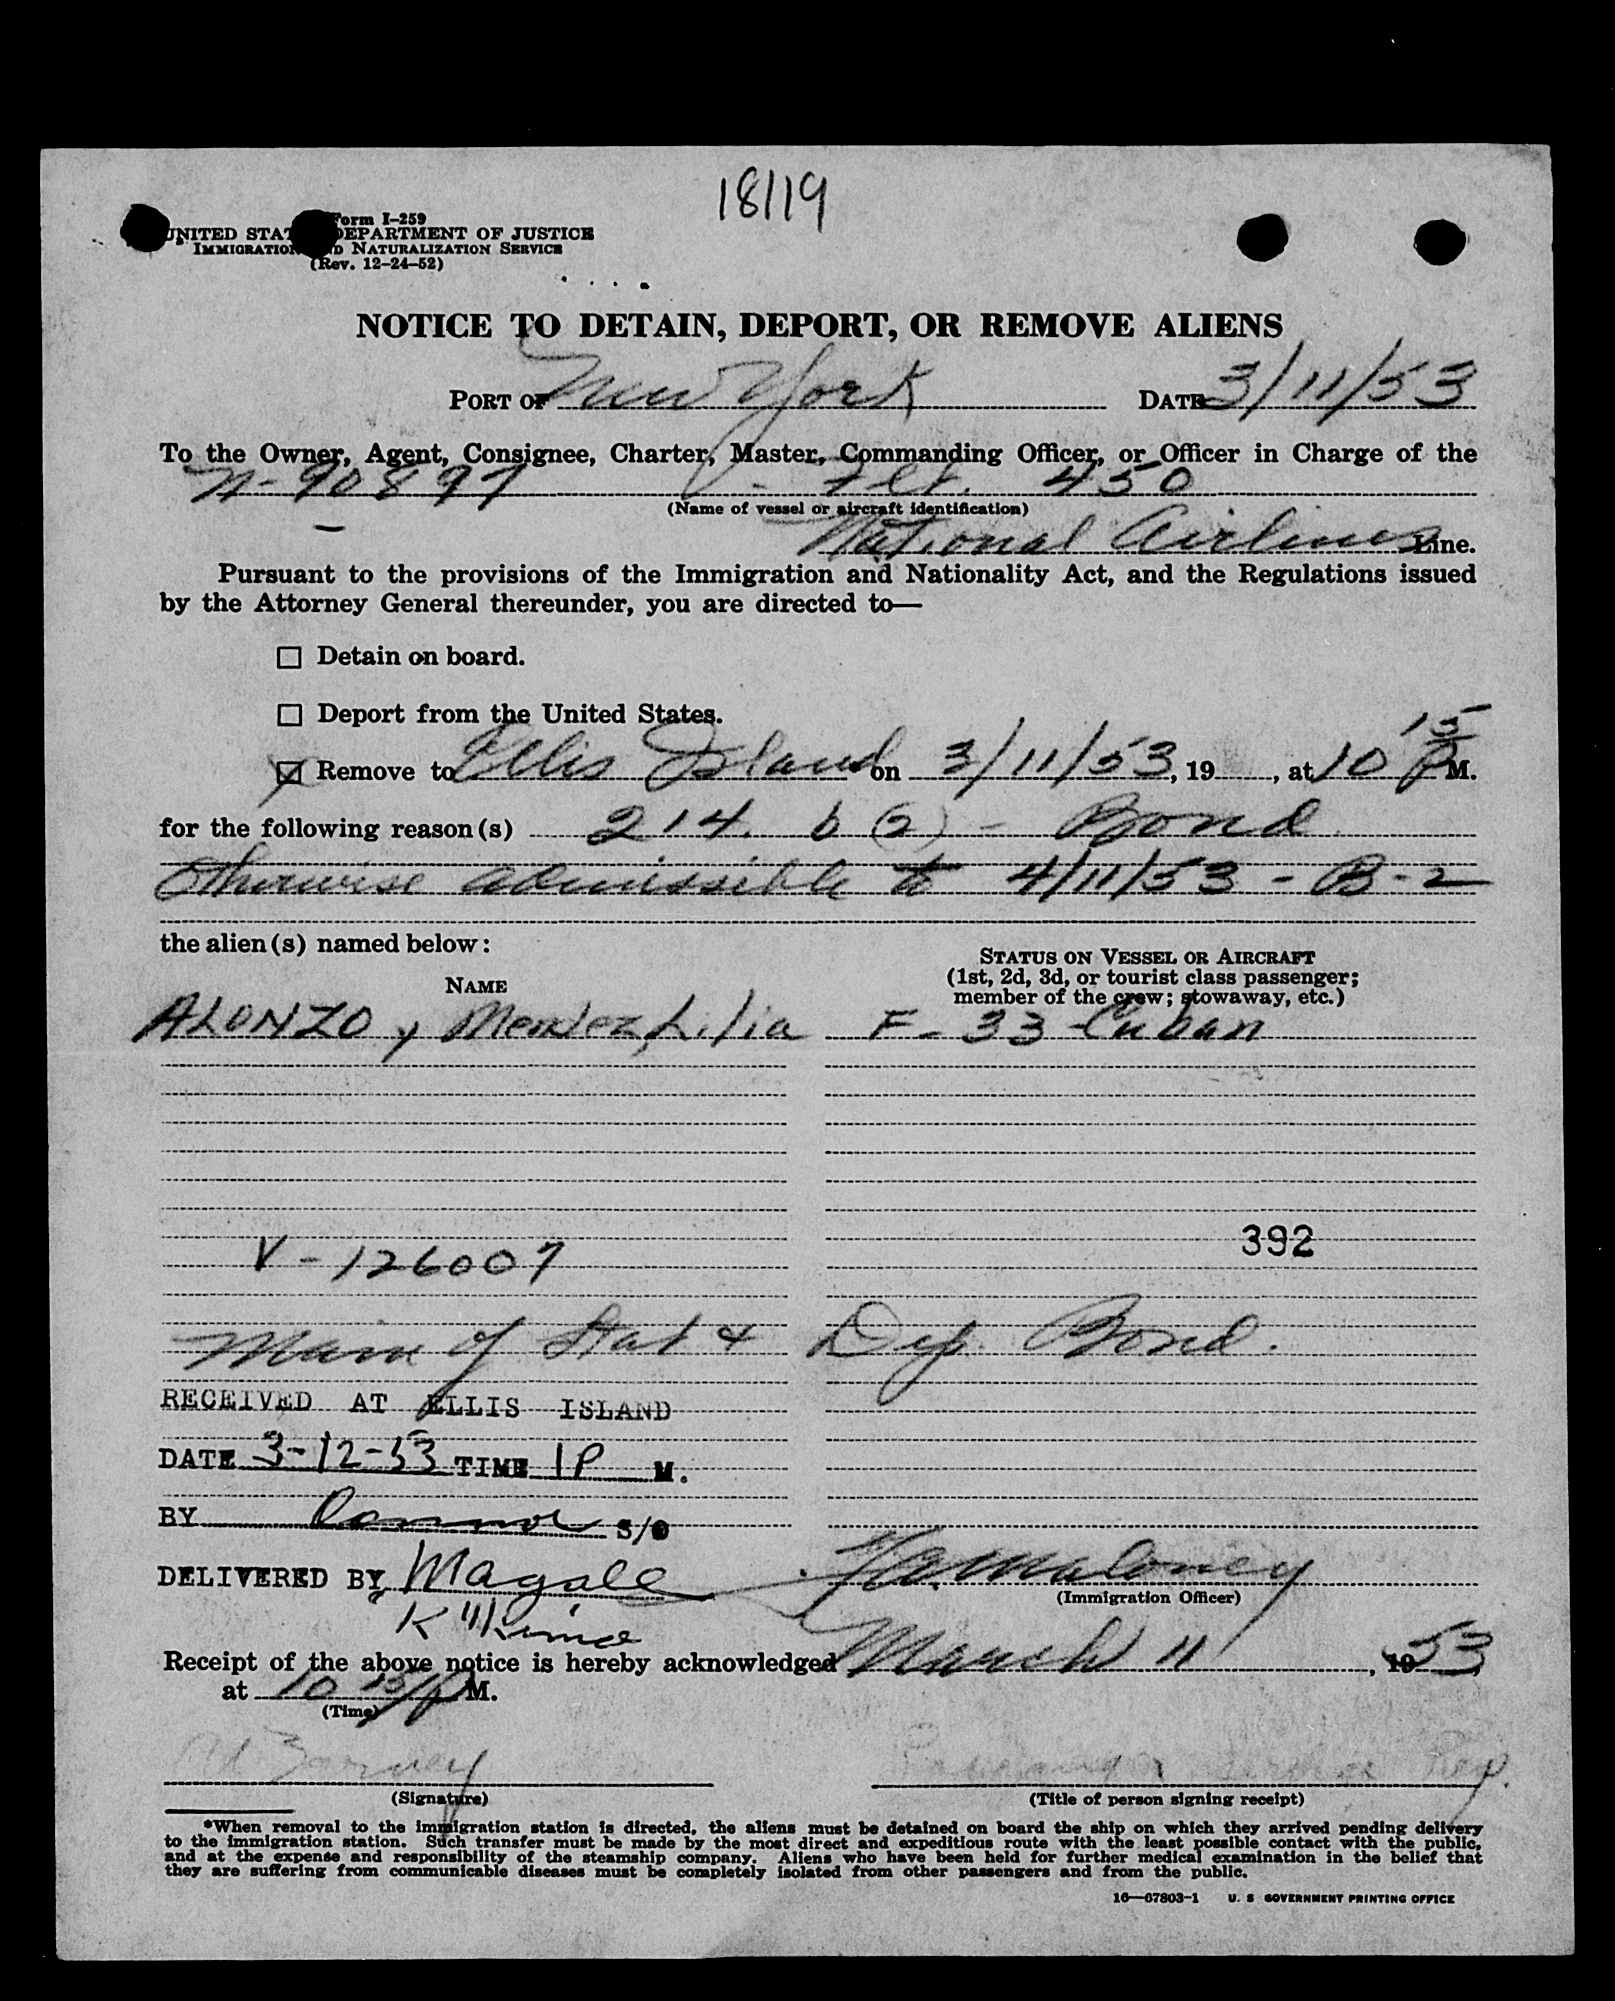 18/19
Form I-259
UNITED STAT DEPARTMENT OF JUSTICE
IMMIGRATION D NATURALIZATION SERVICE
(Rev. 12-24-52)
NOTICE TO DETAIN, DEPORT, OR REMOVE ALIENS
PORT OF New York DATE 3/11/53
To the Owner, Agent, Consignee, Charter, Master, Commanding Officer, or Officer in Charge of the
N-90897 - Flt. 450
(Name of vessel or aircraft identification)
National Airlines Line.
Pursuant to the provisions of the Immigration and Nationality Act, and the Regulations issued
by the Attorney General thereunder, you are directed to—
Detain on board.
Deport from the United States.
Remove to Ellis Island on 3/11/53, 19 , at 10 15 P M.
for the following reason(s) 214. b (2) - Bond
Otherwise admissible to 4/11/53 - B-2
the alien(s) named below:
STATUS ON VESSEL OR AIRCRAFT
(1st, 2d, 3d, or tourist class passenger;
member of the crew; stowaway, etc.)
NAME
ALONZO y Mendez, Lilia F-33 Cuban
392
V-126007
Main of Stat & Dep. Bond.
RECEIVED AT ELLIS ISLAND
DATE 3-12-53 TIME 1P M.
BY Connor S/O
DELIVERED BY Magale
(Immigration Officer)
Receipt of the above notice is hereby acknowledged March 11, 1953,
at 10 15/P M.
(Time)
Passenger Service Rep.
(Signature) (Title of person signing receipt)
*When removal to the immigration station is directed, the aliens must be detained on board the ship on which they arrived pending delivery
to the immigration station. Such transfer must be made by the most direct and expeditious route with the least possible contact with the public,
and at the expense and responsibility of the steamship company. Aliens who have been held for further medical examination in the belief that
they are suffering from communicable diseases must be completely isolated from other passengers and from the public.
16—67803-1 U. S GOVERNMENT PRINTING OFFICE